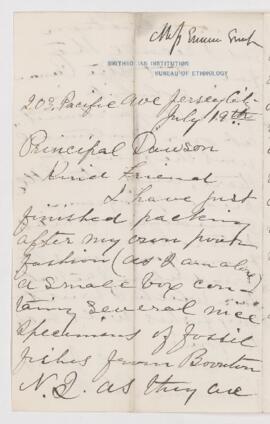 SMITHSONIAN INSTITUTION
BUREAU OF ETHNOLOGY
203 Pacific Ave Jersey City
July 19th
Principal Dawson
Kind Friend
I have just
finished packing
after my own poor
fashion (as I am alone)
a small box con
taing several nice
specimens of fossil
fishes from Boonton
N.J. as they are